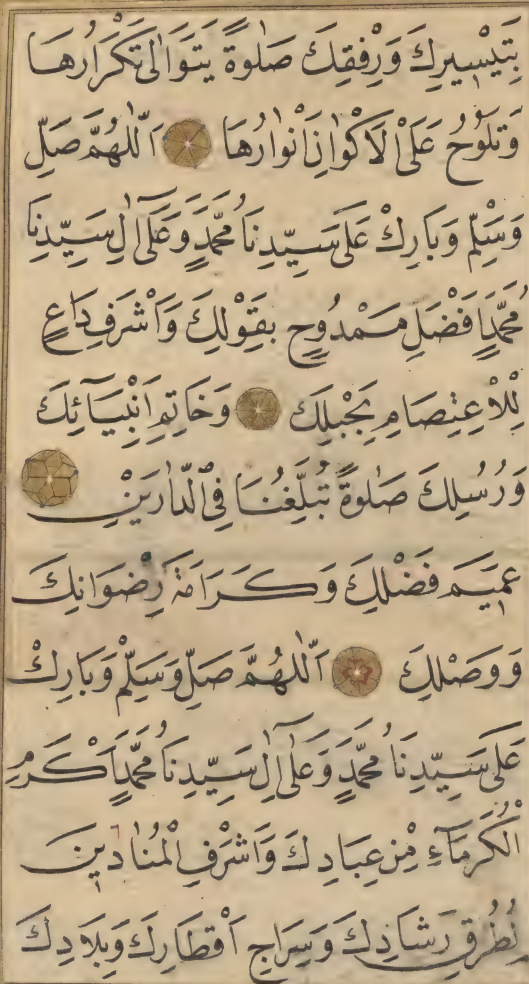 بِتَيْسِيرِكَ وَرِفْقِكَ صَلٰوةً يَتَوَالٰى تَكْرَارُهَا
وَتَلُوْحُ عَلَى الْاَكْوَانِ اَنْوَارُهَا اَللّٰهُمَّ صَلِّ
وَسَلِّمْ وَبَارِكْ عَلٰى سَيِّدِنَا مُحَمَّدٍ وَعَلٰٓى اٰلِ سَيِّدِنَا
مُحَمَّدٍ اَفْضَلِ مَمْدُوحٍ بِقَوْلِكَ وَاَشْرَفِ دَاعٍ
لِلْاِعْتِصَامِ بِحَبْلِكَ وَخَاتِمِ اَنْبِيَآئِكَ
وَرُسُلِكَ صَلٰوةً تُبَلِّغُنَا فِى الدَّارَيْنِ
عَمِيمَ فَضْلِكَ وَكَرَامَةَ رِضْوَانِكَ
وَوَصْلِكَ اَللّٰهُمَّ صَلِّ وَسَلِّمْ وَبَارِكْ
عَلٰى سَيِّدِنَا مُحَمَّدٍ وَعَلٰٓى اٰلِ سَيِّدِنَا مُحَمَّدٍ اَكْرَمِ
الْكُرَمَآءِ مِنْ عِبَادِكَ وَاَشْرَفِ الْمُنَادِينَ
لِطُرُقِ رَشَادِكَ وَسِرَاجِ اَقْطَارِكَ وَبِلَادِكَ